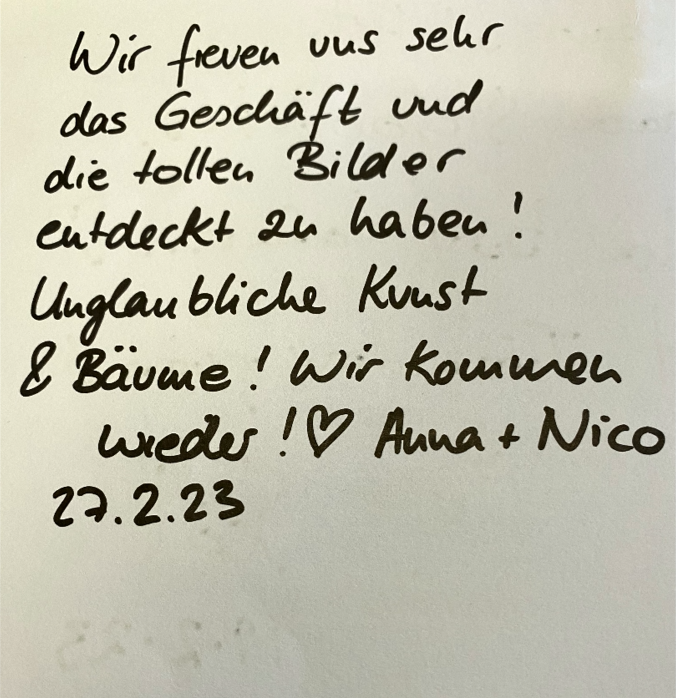 Wir freuen uns sehr
das Geschäft und
die tollen Bilder
entdeckt zu haben!
Unglaubliche Kunst
& Bäume! Wir kommen
wieder! ♡ Anna + Nico
27.2.23